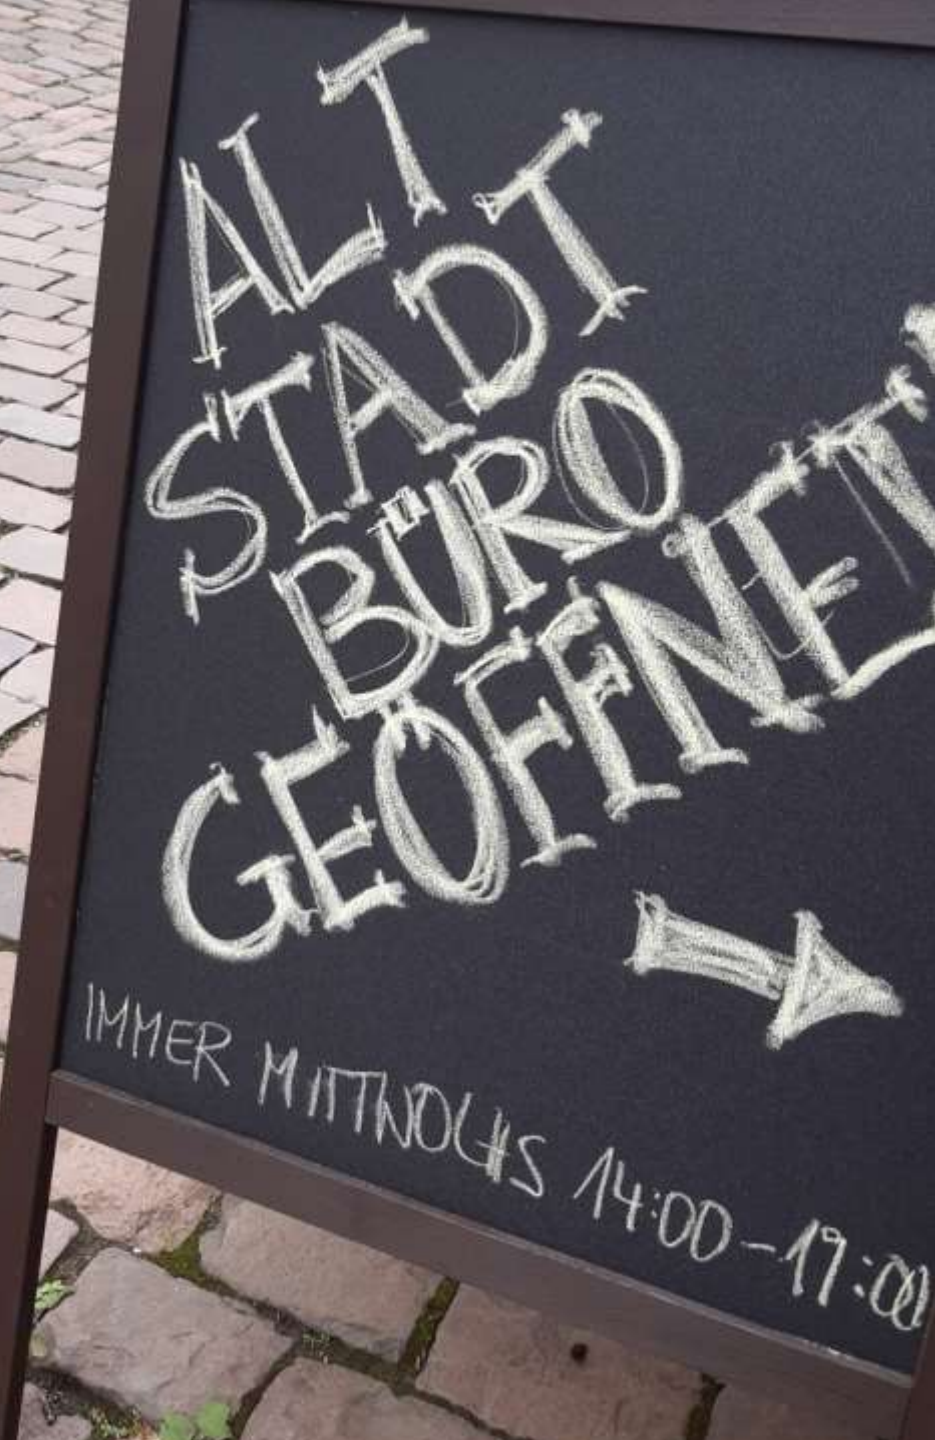 ALT
STADT
BÜRO
GEÖFFNET
IMMER MITTWOCHS 14:00-19:00